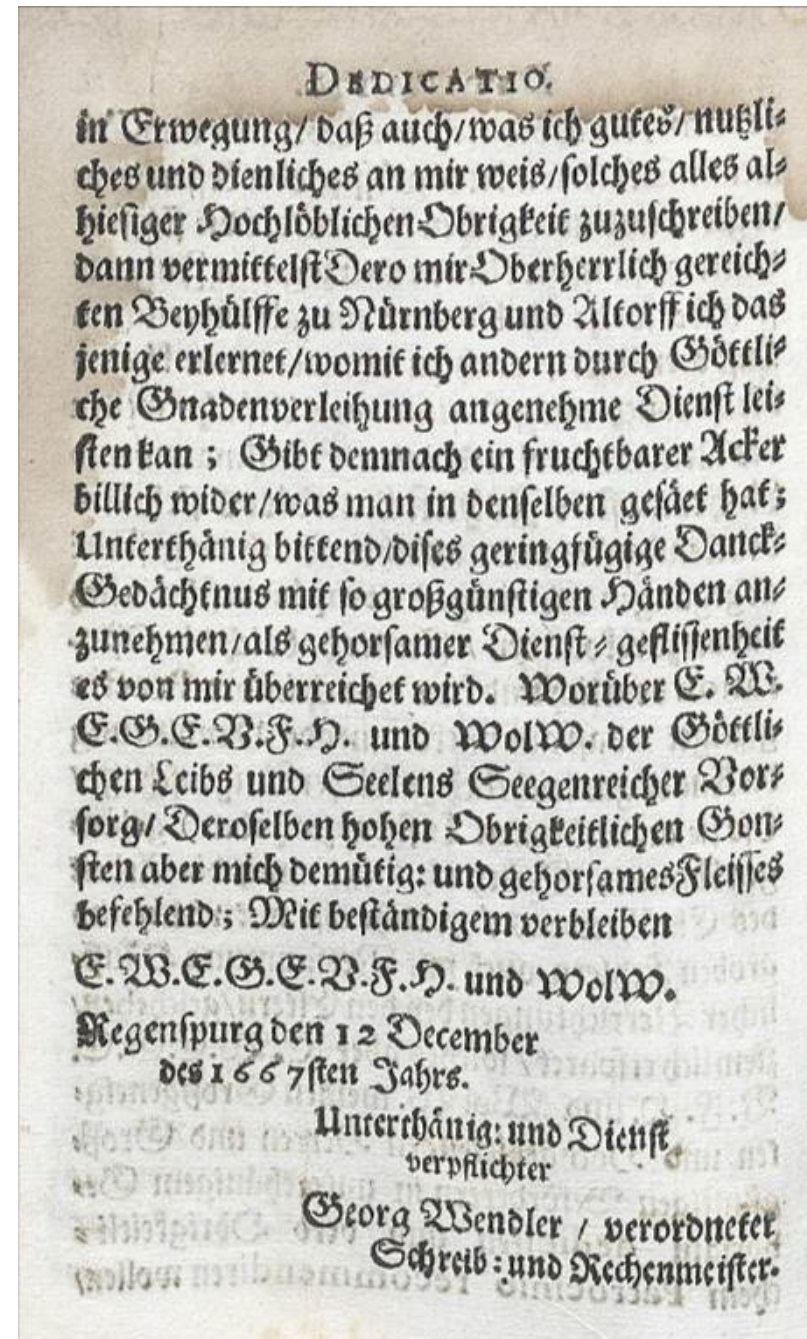 DEDICATIO.
in Erwegung/ daß auch/was ich gutes/ nutzli⸗
ches und dienliches an mir weis/solches alles al⸗
hiesiger Hochlöblichen Obrigkeit zuzuschreiben/
dann vermittelst Dero mir Oberherrlich gereich⸗
ten Beyhülffe zu Nürnberg und Altorff ich das
jenige erlernet/womit ich andern durch Göttli⸗
che Gnadenverleihung angenehme Dienst lei⸗
sten kan ; Gibt demnach ein fruchtbarer Acker
billich wider/was man in denselben gesäet hat;
Unterthänig bittend/dises geringfügige Danck⸗
Gedächtnus mit so großgünstigen Händen an⸗
zunehmen/als gehorsamer Dienst⸗geflissenheit
es von mir überreichet wird. Worüber E. W.
E.G.E.V.F.H. und WolW. der Göttli⸗
chen Leibs und Seelens Seegenreicher Vor⸗
sorg/ Deroselben hohen Obrigkeitlichen Gon⸗
sten aber mich demütig: und gehorsames Fleisses
befehlend; Mit beständigem verbleiben
E.W.E.G.E.V.F.H. und WolW.
Regenspurg den 12 December
des 1667sten Jahrs.
Unterthänig: und Dienst
verpflichter
Georg Wendler / verordneter
Schreib: und Rechenmeister.